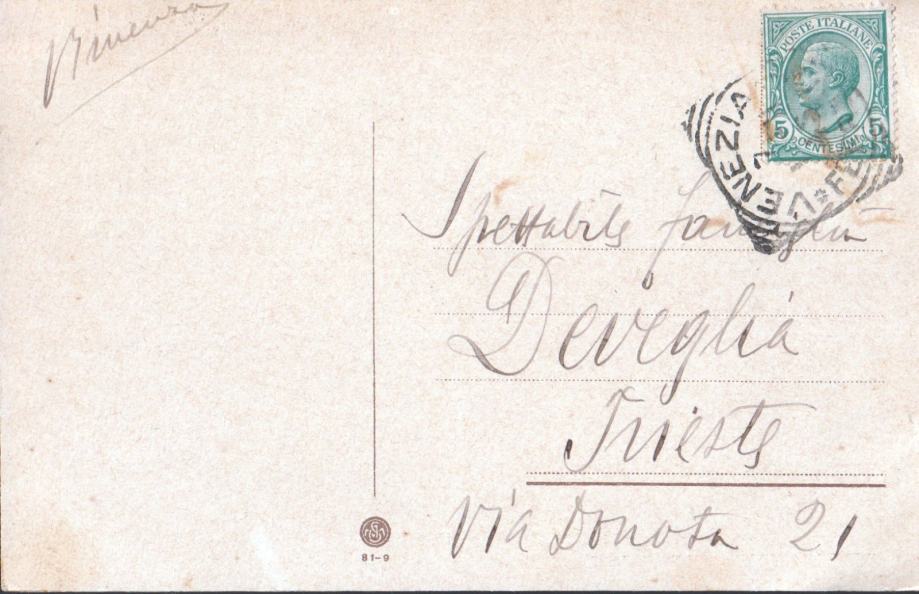 POSTE ITALIANE
5 CENTESIMI 5
VENEZIA
Spettabile famiglia
Deveglia
Trieste
Via Donota 21
81-9